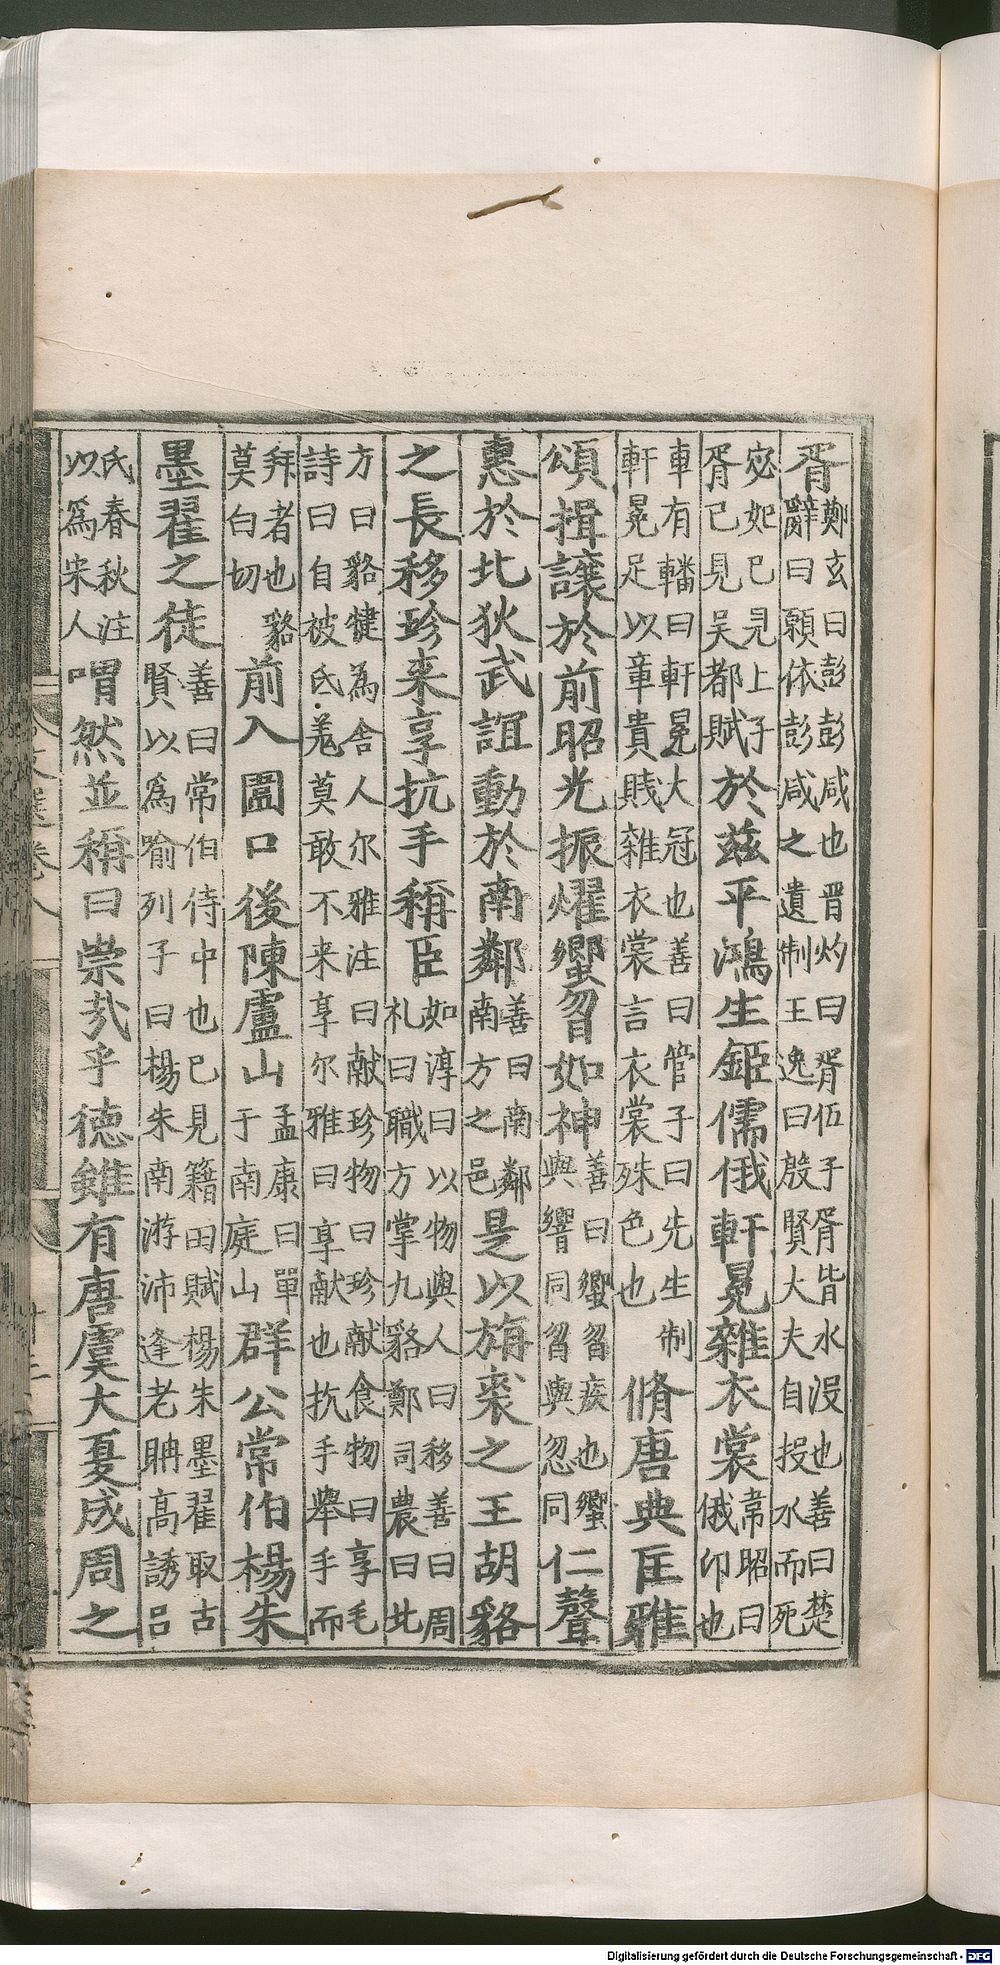 胥鄭玄曰彭彭咸也晋灼曰胥伍子胥皆水没也善曰楚辭曰願依彭咸之遺制王逸曰殷賢大夫自投水而死
宓妃已見上子胥已見吴都賦於兹乎鴻生鉅儒俄軒冕雜衣裳韋昭曰俄卬也
車有轓曰軒冕大冠也善曰管子曰先生制軒冕足以章貴賤雜衣裳言衣裳殊色也脩唐典匡雅
頌揖讓於前昭光振燿蠁曶如神善曰蠁曶疾也蠁與響同曶與忽同仁聲
惠於北狄武誼動於南鄰善曰南鄰南方之邑是以旃裘之王胡貉
之長移珍来享抗手稱臣如淳曰以物與人曰移善曰周札曰職方掌九貉鄭司農曰北
方曰貉犍為舍人尔雅注曰献珍物曰珍献食物曰享毛詩曰自彼氐羌莫敢不来享尔雅曰享献也抗手舉手而
拜者也貉莫白切前入圍口後陳盧山孟康曰單于南庭山群公常伯楊朱
墨翟之徒善曰常伯侍中也已見籍田賦楊朱墨翟取古賢以為喻列子曰楊朱南游沛逢老聃高誘吕
氏春秋注以為宋人喟然並稱曰崇哉乎德雖有唐虞大夏成周之
文選卷八
Digitalisierung gefördert durch die Deutsche Forschungsgemeinschaft - DFG